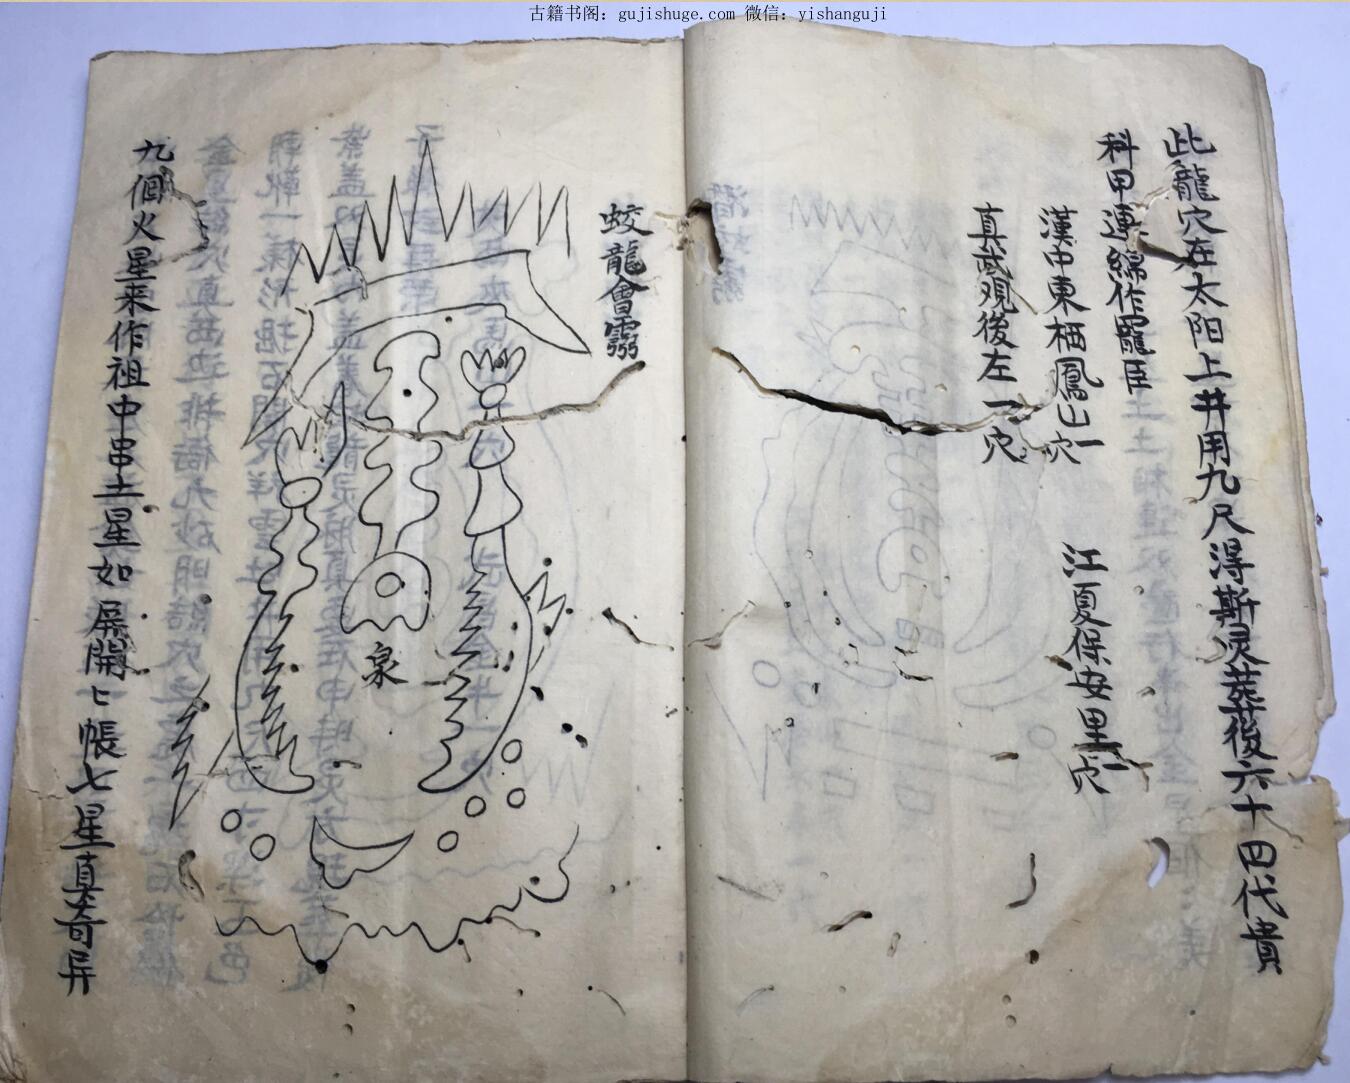 古籍书阁：gujishuge.com 微信：yishanguji
此龍穴在太阳上井用九尺得斯灵葬後六十四代貴
科甲連綿作寵臣
漢中東栖鳳山一穴
真武观後左一穴
江夏保安里一穴
蛟龍會
泉
九個火星来作祖中串土星如屏開匕帳七星真奇异